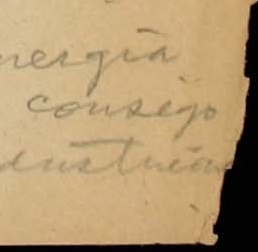 nergía
consigo
dustrias